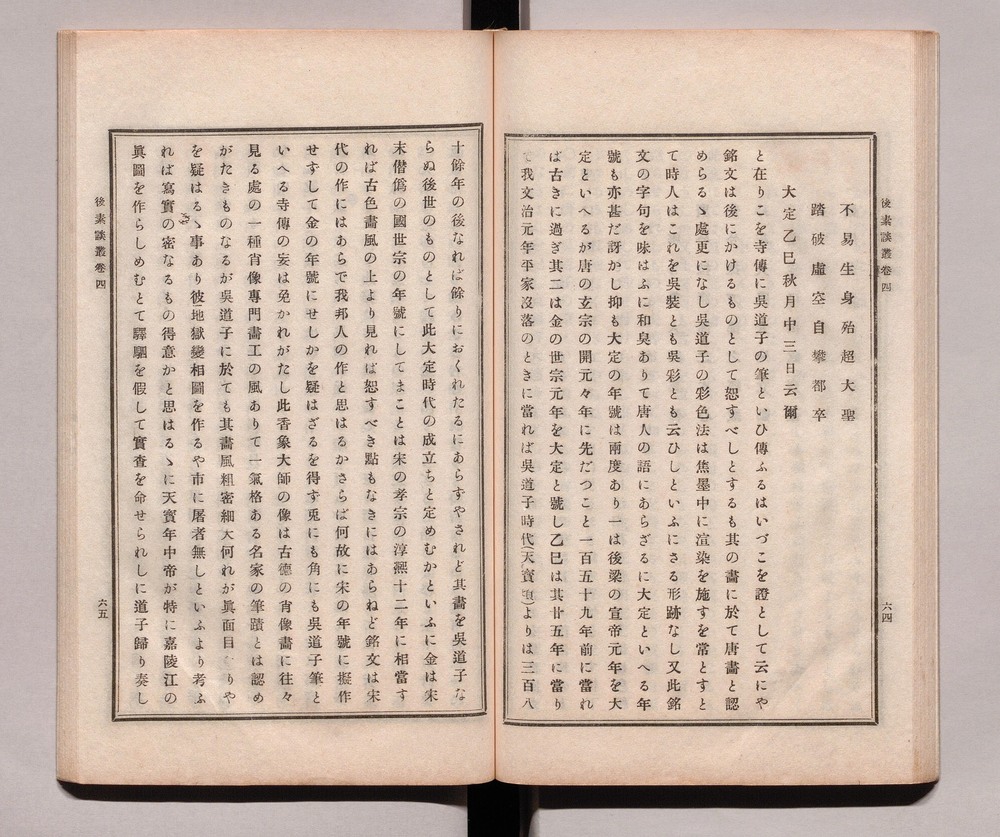 後素談叢卷四
不易生身殆超大聖
踏破虛空自攀都卒
大定乙巳秋月中三日云爾
と在りこを寺傳に吳道子の筆といひ傳ふるはいづこを證として云にや
銘文は後にかけるものとして恕すべしとするも其の畵に於て唐畵と認
めらるゝ處更になし吳道子の彩色法は焦墨中に渲染を施すを常とすと
て時人はこれを吳裝とも吳彩とも云ひしといふにさる形跡なし又此銘
文の字句を味はふに和臭ありて唐人の語にあらざるに大定といへる年
號も亦甚だ訝かし抑も大定の年號は兩度あり一は後梁の宣帝元年を大
定といへるが唐の玄宗の開元々年に先だつこと一百五十九年前に當れ
ば古きに過ぎ其二は金の世宗元年を大定と號し乙巳は其廿五年に當り
て我文治元年平家沒落のときに當れば吳道子時代(天寶頃)よりは三百八
六四
十餘年の後なれば餘りにおくれたるにあらずやされど其畵を吳道子な
らぬ後世のものとして此大定時代の成立ちと定めむかといふに金は宋
末僭僞の國世宗の年號にしてまことは宋の孝宗の淳熙十二年に相當す
れば古色畵風の上より見れば恕すべき點もなきにはあらねど銘文は宋
代の作にはあらで我邦人の作と思はるかさらば何故に宋の年號に擬作
せずして金の年號にせしかを疑はざるを得ず兎にも角にも吳道子筆と
いへる寺傳の妄は免かれがたし此香象大師の像は古德の肖像畵に往々
見る處の一種肖像專門畵工の風ありて一氣格ある名家の筆蹟とは認め
がたきものなるが吳道子に於ても其畵風粗密細大何れが眞面目りや
を疑はるゝ事あり彼地獄變相圖を作るや市に屠者無しといふより考ふ
れば寫實の密なるもの得意かと思はるゝに天寶年中帝が特に嘉陵江の
眞圖を作らしめむとて驛駟を假して實査を命せられしに道子歸り奏し
後素談叢卷四
六五